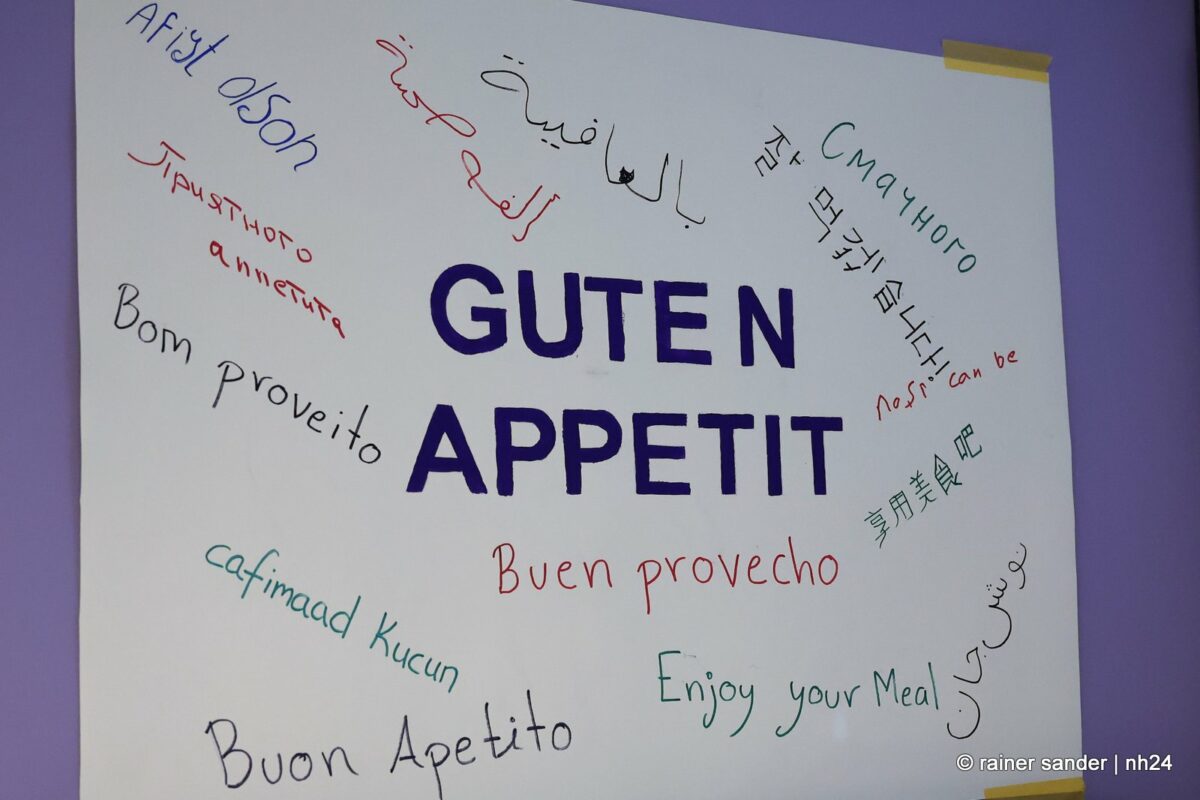 Afiyt olson
ألف صحة
بالعافية
잘 먹겠습니다!
Смачного
Приятного
аппетита
GUTEN
APPETIT
Bom proveito
noşi can be
享用美食吧
Buen provecho
cafimaad Kucun
نوش جان
Enjoy your Meal
Buon Apetito
© rainer sander | nh24